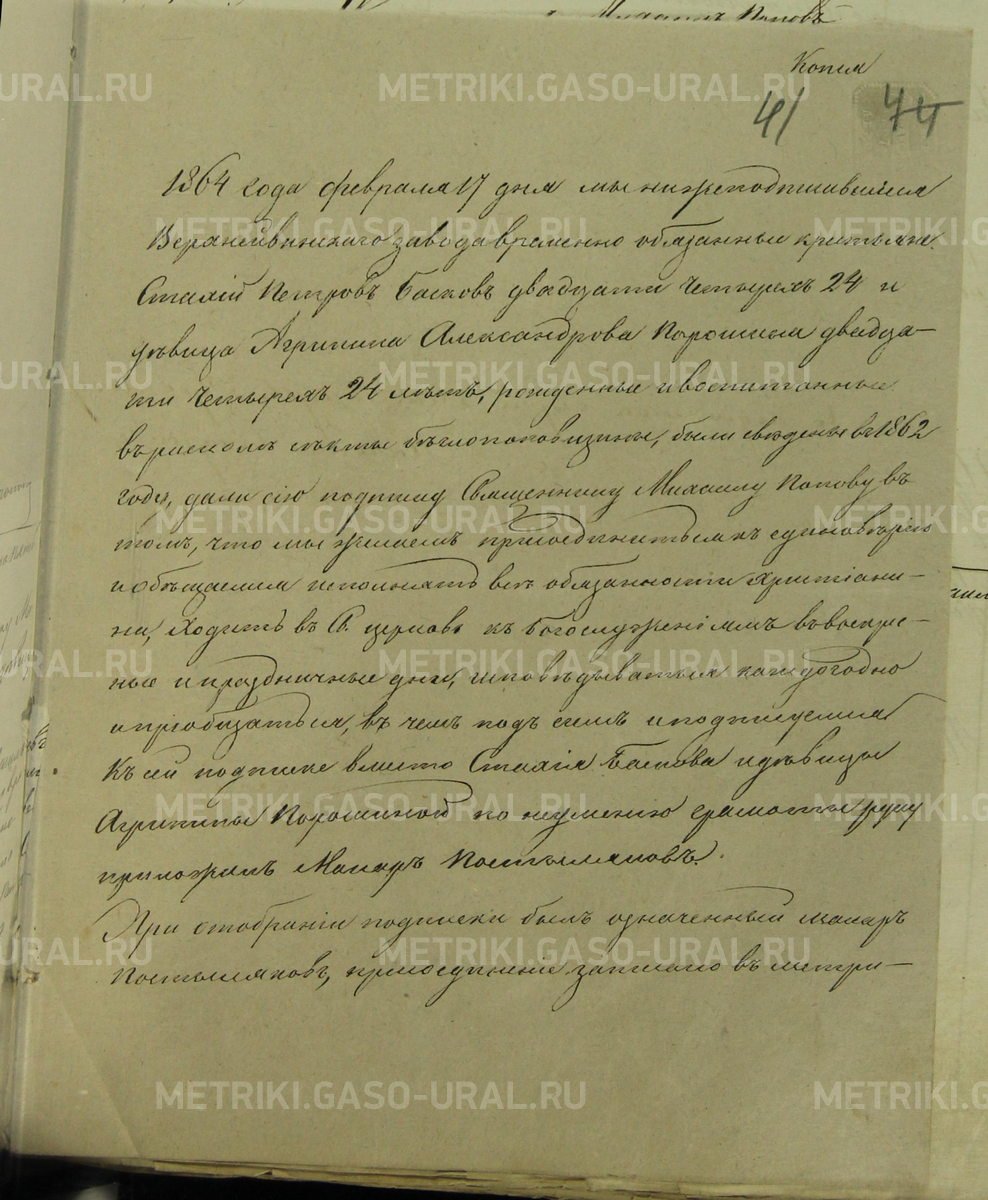 Михаилъ Поповъ
Копия
41 74
1864 года февраля 17 дня мы нижеподписавшіеся
Верхнейвинскаго завода временно обязанные крестьяне
Стахій Петровъ Басковъ двадцати четырехъ 24 и
дѣвица Агрипина Александрова Порошина двадца-
ти четырехъ 24 лѣтъ, рожденные и воспитанные
въ расколѣ секты бѣглопоповщины, были сведены въ 1862
году, дали сію подписку Священнику Михаилу Попову въ
томъ, что мы желаемъ присоединиться къ единовѣрію
и обѣщаемся исполнять всѣ обязанности христіани-
на, ходить въ С. церковь къ богослуженіямъ въ воскрес-
ные и праздничные дни, исповѣдываться каждогодно
и пріобщаться, въ чемъ подъ симъ и подписуемся
Къ сей подписке вместо Стахія Баскова и дѣвицы
Агрипины Порошиной по неумению грамоты руку
приложилъ Макаръ Костылямовъ.
При отобраніи подписки былъ означенный Макаръ
присоединеніе записано въ метри-
METRIKI.GASO-URAL.RU